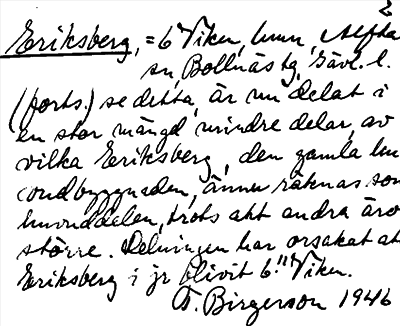 2
Eriksberg, = 6" Viken, hmn, Alfta
sn, Bollnäs tg, Gävl. l.
(forts.) se detta, är nu delat i
en stor mängd mindre delar, av
vilka Eriksberg, den gamla hu
vudbyggnaden, ännu räknas som
huvuddelen, trots att andra äro
större. Delningen har orsakat at
Eriksberg i jr blivit 6:" Viken.
F. Birgerson 1946